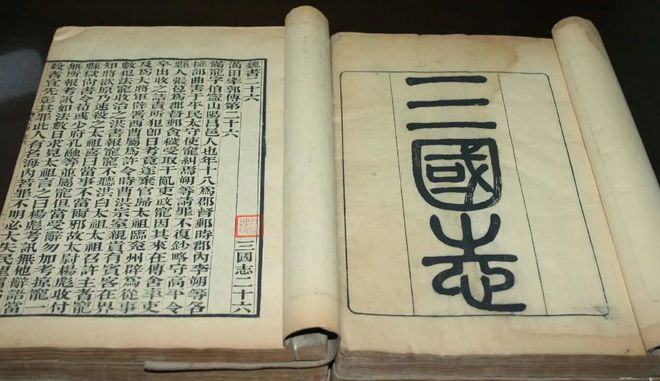 三國志
魏書二十六 三國志二十六
滿田牽郭傳第二十六
滿寵字伯寧山陽昌邑人也年十八爲郡督郵時郡內李朔等各
擁部曲害于平民太守使寵糾焉朔等請罪不復鈔略守高平令
縣人張苞爲郡督郵貪穢受取干亂吏政寵因其來在傳舍率吏
卒出收之詰責所犯即日考竟遂棄官歸太祖臨兗州辟爲從事
及爲大將軍辟署西曹屬爲許令時曹洪宗室親貴有賓客在界
數犯法寵收治之洪書報寵寵不聽洪白太祖太祖召許主者寵
知將欲原乃速殺之太祖喜曰當事不當爾邪故太尉楊彪收付
縣獄尚書令荀彧少府孔融等並屬寵但當受辭勿加考掠寵一
無所報考訊如法數日求見太祖言之曰楊彪考訊無他辭語當
殺者宜先彰其罪此人有名海內若罪不明必大失民望